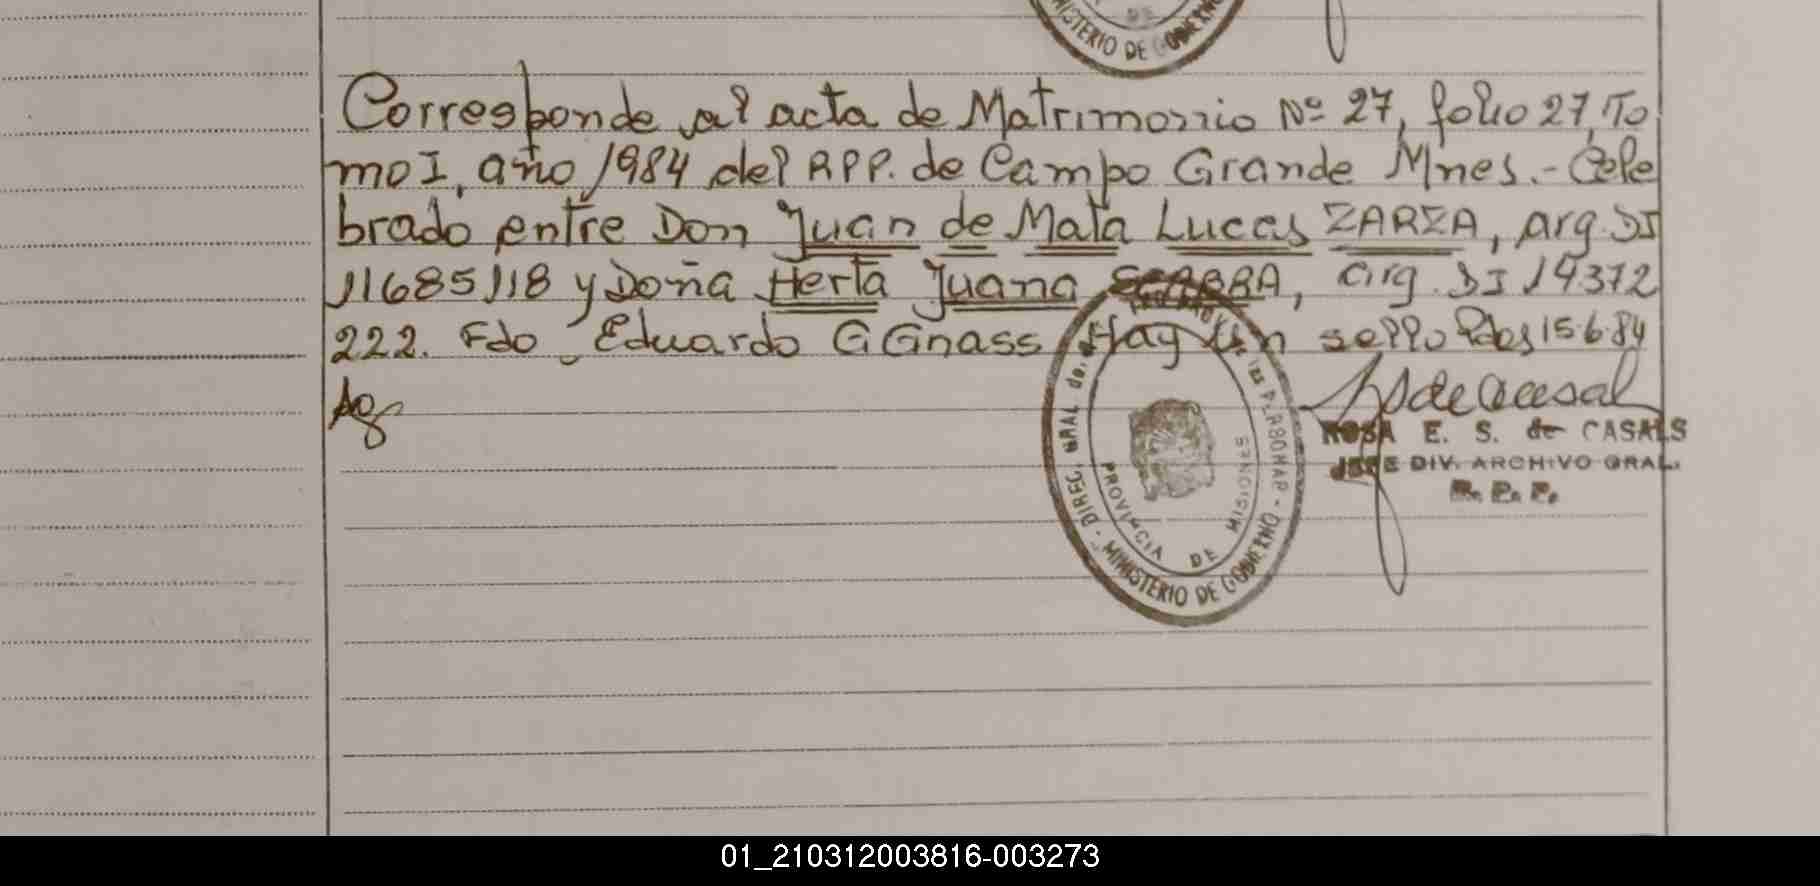 MINISTERIO DE GOBIERNO
DE
Corresponde al acta de Matrimonio Nº 27, folio 27, To
mo I, año 1984 del RPP. de Campo Grande Mnes.- Cele
brado entre Don Juan de Mata Lucas ZARZA, arg. DI
11685118 y Doña Herta Juana, arg. DI 14372
222. Fdo Eduardo G Gnass Hay un sello Pdas 15.6.84
DIREC. GRAL de las PERSONAS - MINISTERIO DE GOBIERNO -
PROVINCIA DE MISIONES
ROSA E. S. de CASALS
JEFE DIV. ARCHIVO GRAL.
R. P. P.
01_210312003816-003273